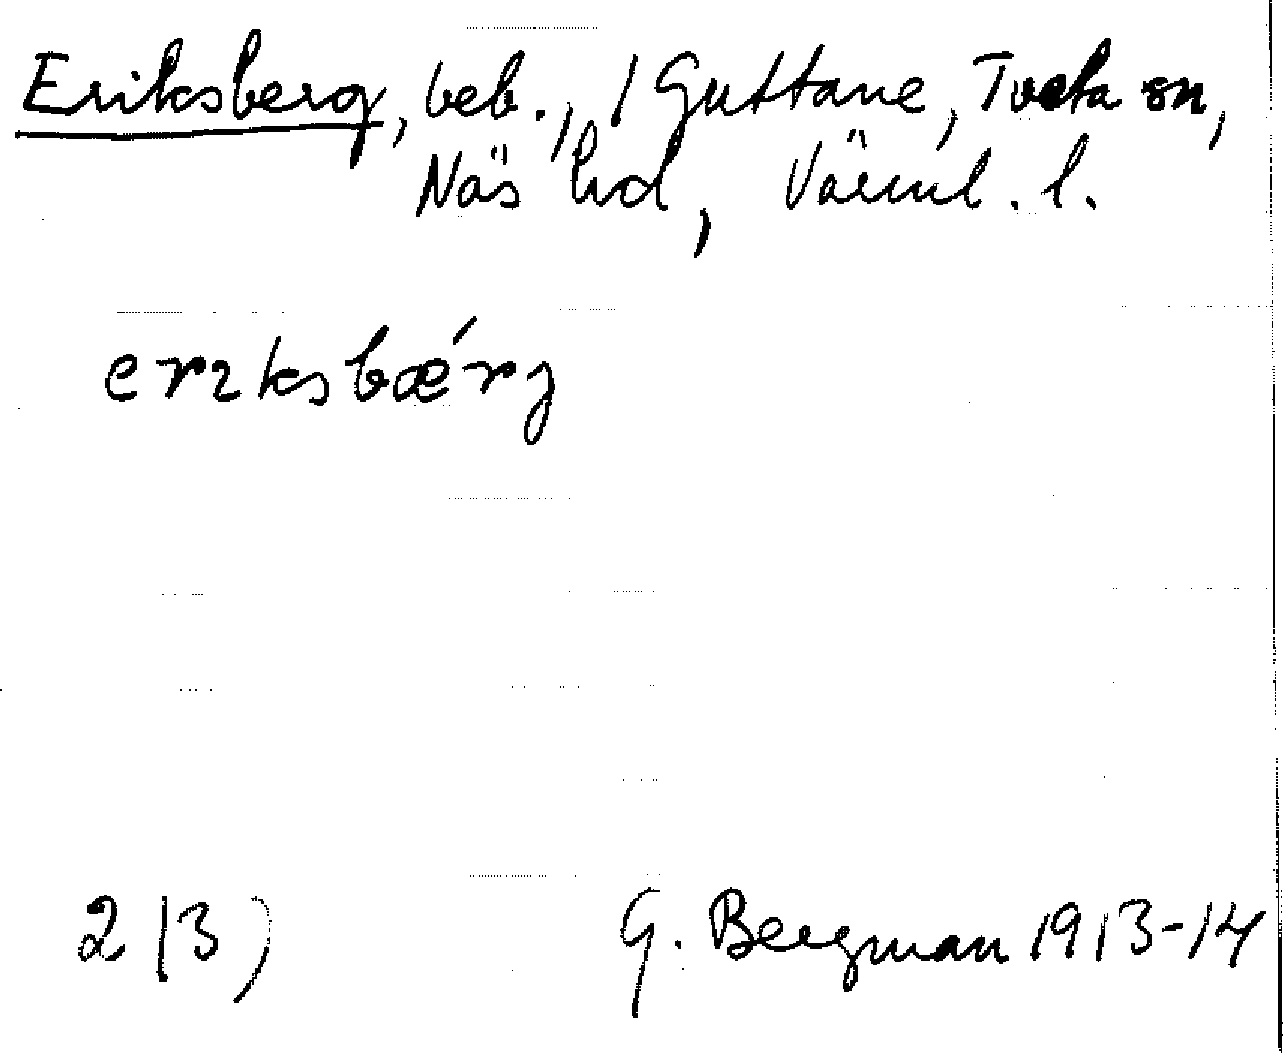 Eriksberg, beb., 1 Guttane, Tveta sn,
Näs hd, Värml. l.
erɩksbǽrj
2 (3)
G. Bergman 1913-14